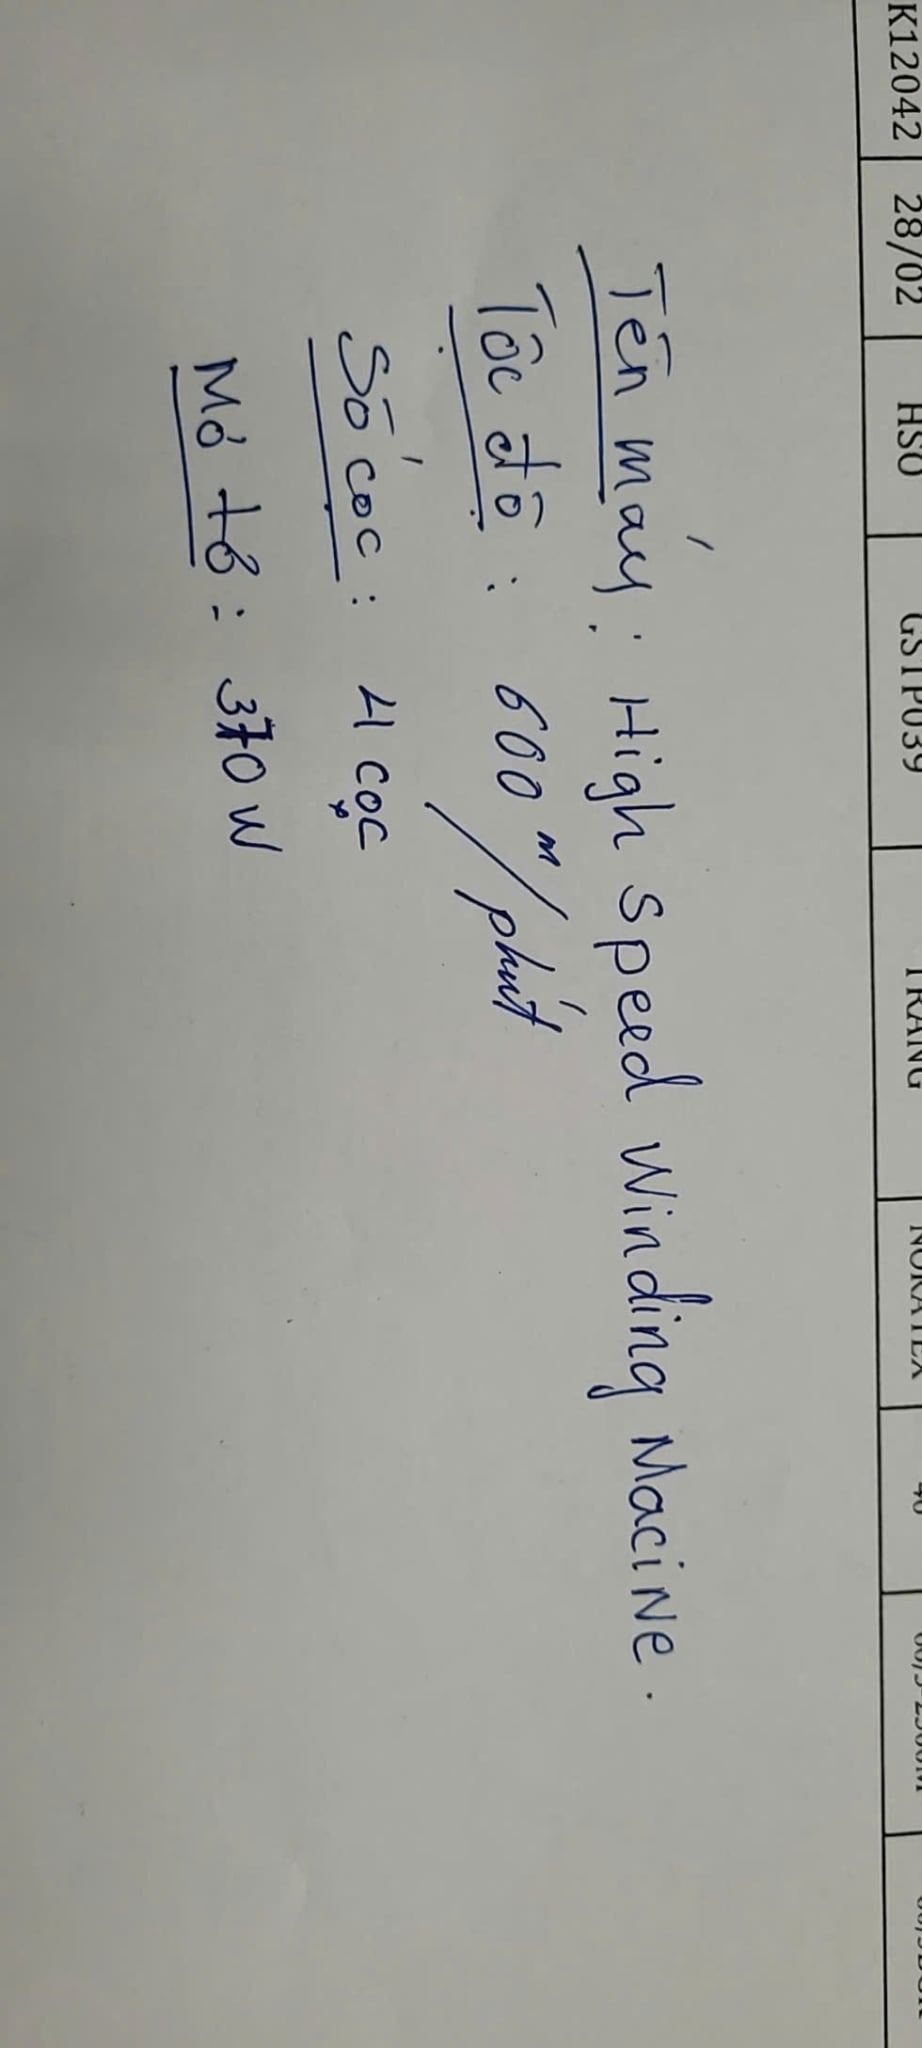 K12042 28/02 HSO GSTP039 TRANG NORATEX 40
Tên máy: High Speed Winding Macine.
Tộc độ: 600 m/phút
Số cọc: 4 cọc
Mô tô: 370 W